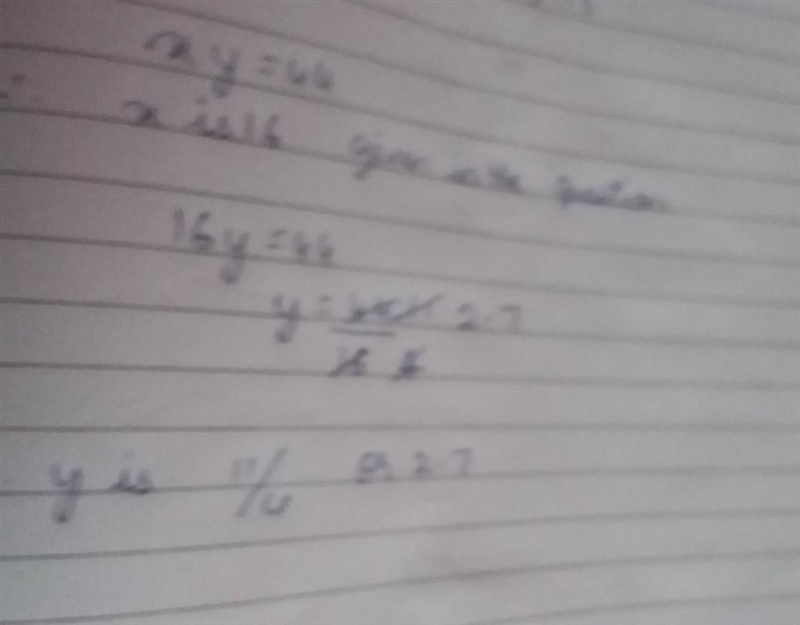 xy = 44
∴ x is 16 given in the question
16y = 44
y = 44 2.7
16 4
y is 11/4 or 2.7